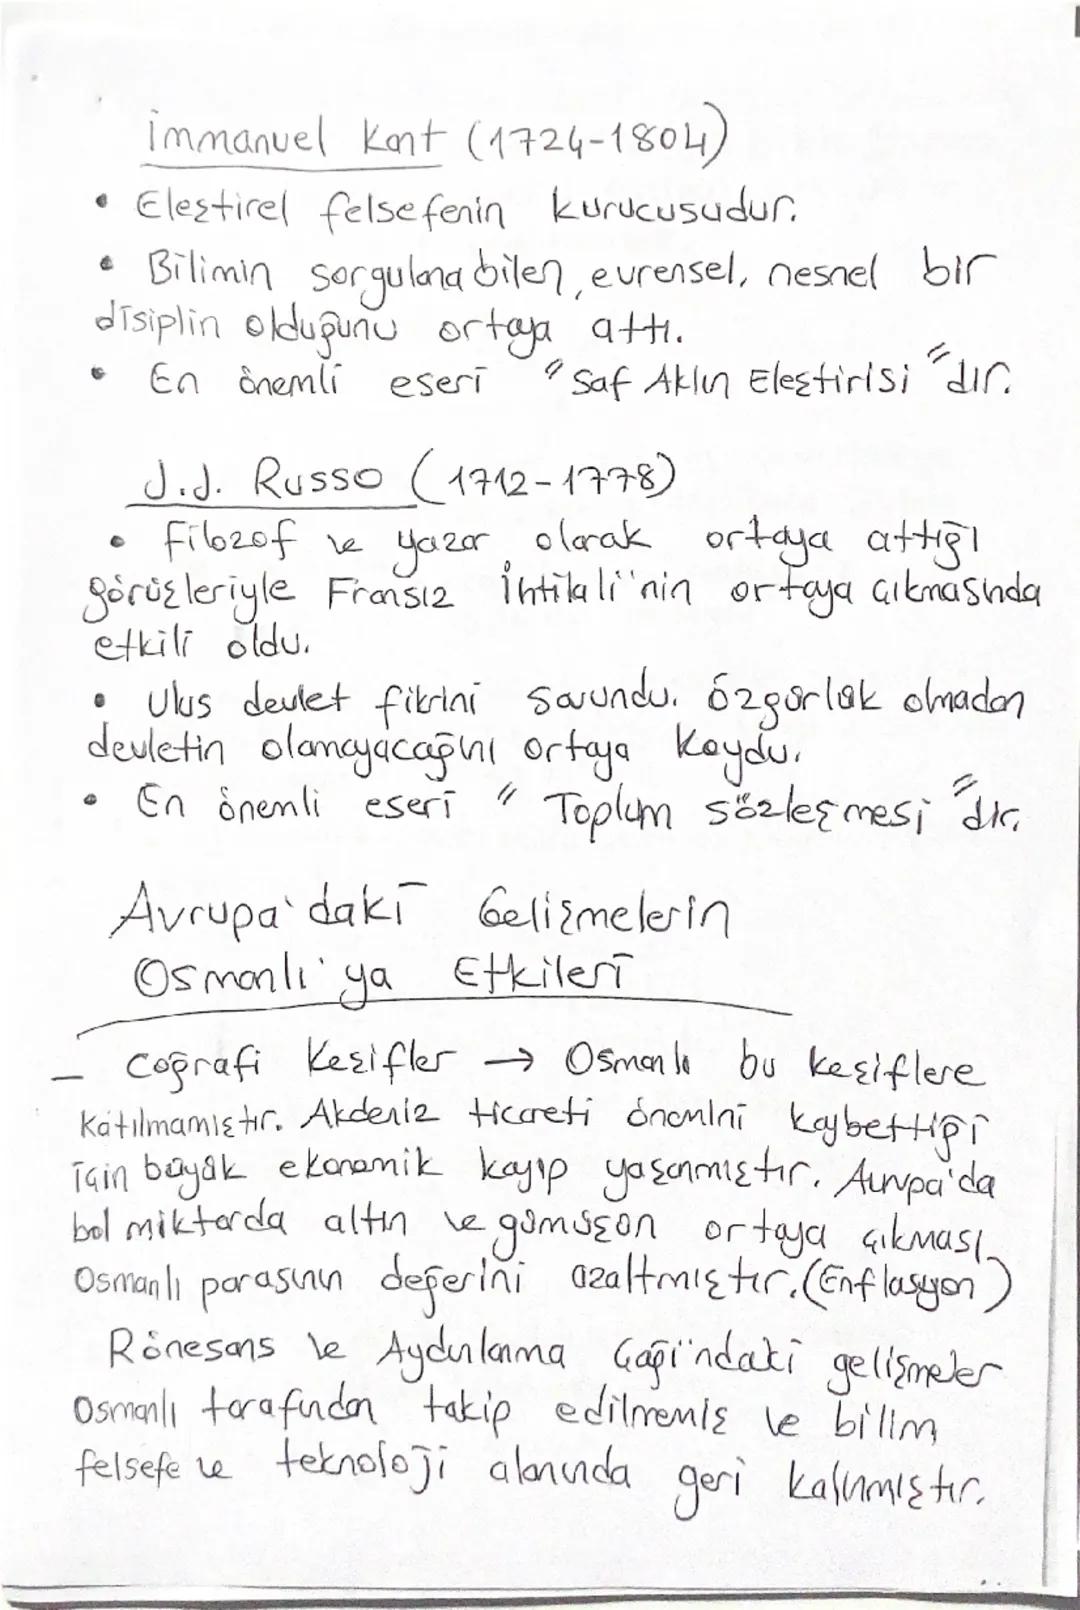 İmmanuel Kant (1724-1804)
• Eleştirel felsefenin kurucusudur.
• Bilimin sorgulanabilen, evrensel, nesnel bir
disiplin olduğunu ortaya attı.
• En önemli eseri "Saf Aklın Eleştirisi"dır.
J.J. Russo (1712-1778)
• Filozof ve yazar olarak ortaya attığı
görüşleriyle Fransız İhtilali'nin ortaya çıkmasında
etkili oldu.
• Ulus devlet fikrini savundu. Özgürlük olmadan
devletin olamayacağını ortaya koydu.
• En önemli eseri "Toplum sözleşmesi"dır.
Avrupa'daki Gelişmelerin
Osmanlı'ya Etkileri
- Coğrafi Keşifler → Osmanlı bu keşiflere
katılmamıştır. Akdeniz ticareti önemini kaybettiği
için büyük ekonomik kayıp yaşanmıştır. Avrupa'da
bol miktarda altın ve gümüşün ortaya çıkması,
Osmanlı parasının değerini azaltmıştır. (Enflasyon)
Rönesans ve Aydınlanma Çağı'ndaki gelişmeler
Osmanlı tarafından takip edilmemiş ve bilim,
felsefe ve teknoloji alanında geri kalınmıştır.